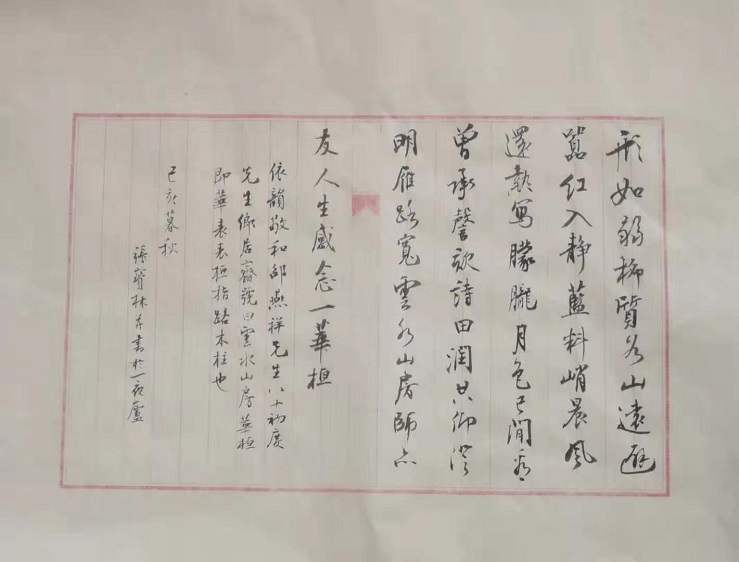 形如弱柳質如山遠避
囂紅入靜藍料峭晨風
還寫朦朧月色已閒看
曾承謦欬詩田潤共仰澄
明雁路寬雲水山房師亦
友人生感念一華桓
依韻敬和邵燕祥先生八十初度
先生鄉居齋號曰雲水山房華桓
即華表表桓指路木柱也
己亥暮秋
張寶林并書於一廬